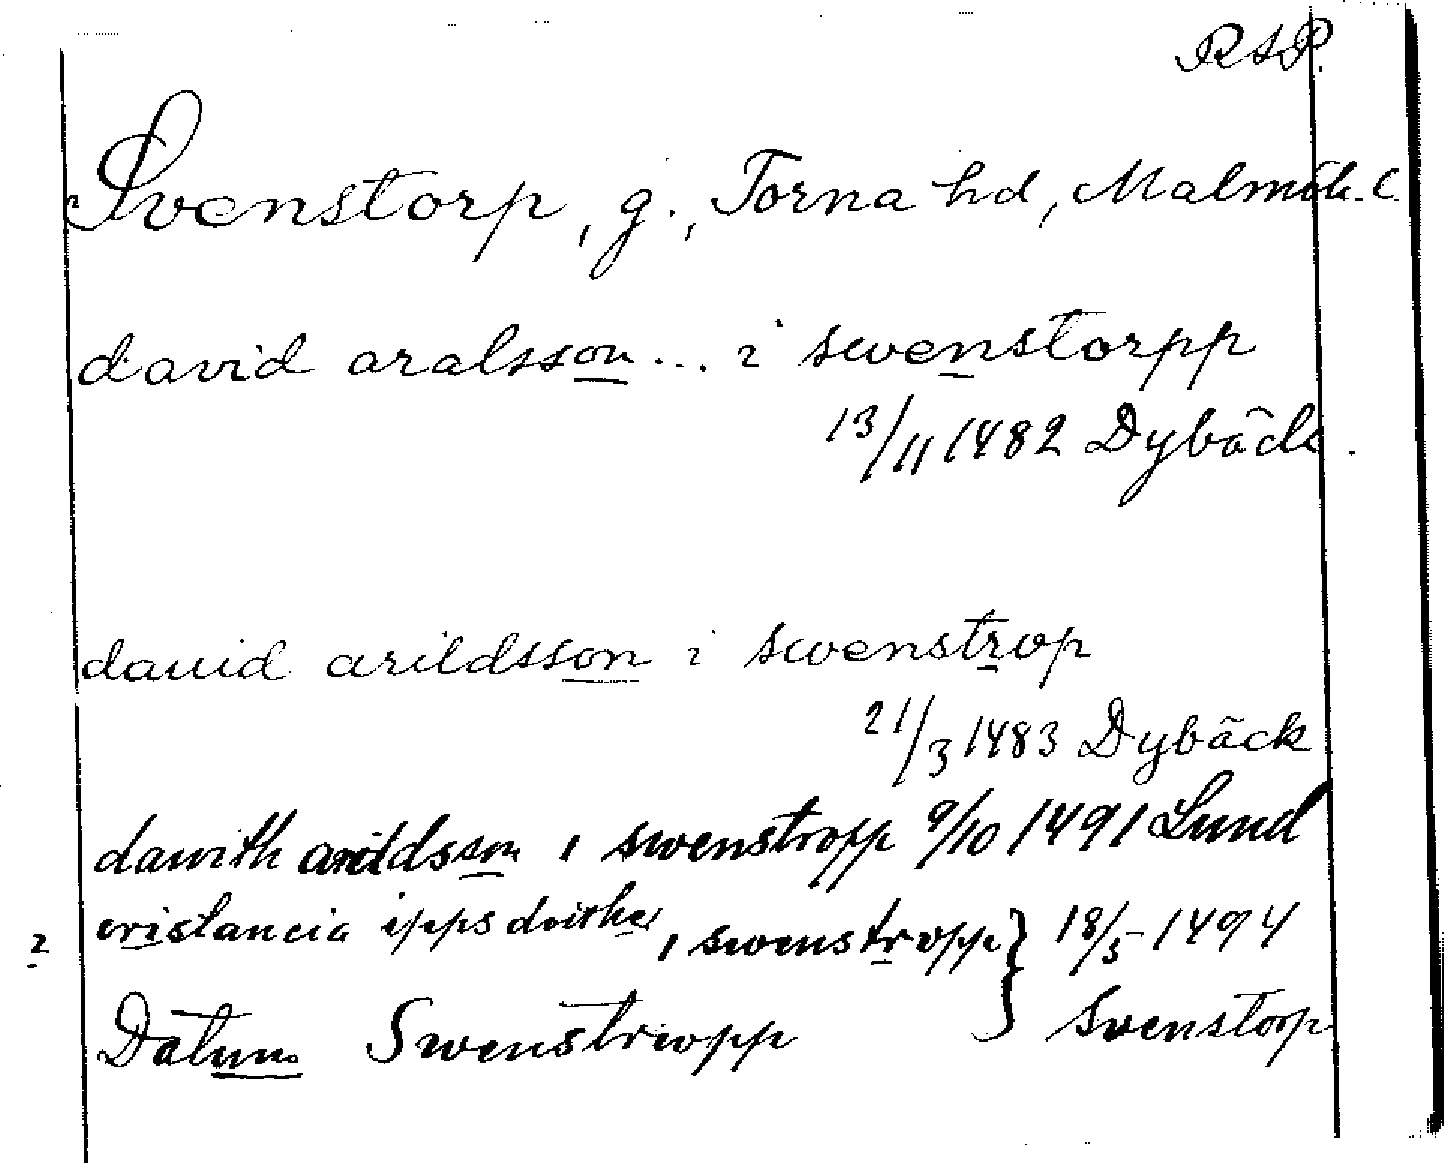 RAP.
Svenstorp, g., Torna hd, Malmöh. l.
david aralsson ... i swenstorpp
13/11 1482 Dybäck.
dauid arildsson i swenstrop
21/3 1483 Dybäck
dawith arildsson i swenstropp 9/10 1491 Lund
cristancia ipps doither i swenstropp } 18/5 1494
2
Datum Swenstrwpp } Svenstorp